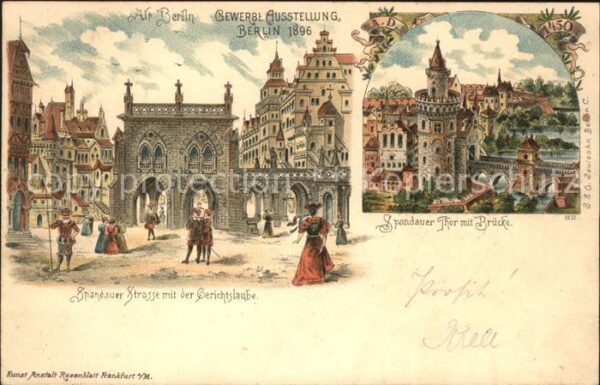 Alt Berlin
GEWERBE AUSSTELLUNG
BERLIN 1896
A.D. 1450
Spandauer Strasse mit der Gerichtslaube.
Spandauer Thor mit Brücke.
1931
Prosit!
Kunst Anstalt Rosenblatt Frankfurt a/M.
copyright protection Kopierschutz